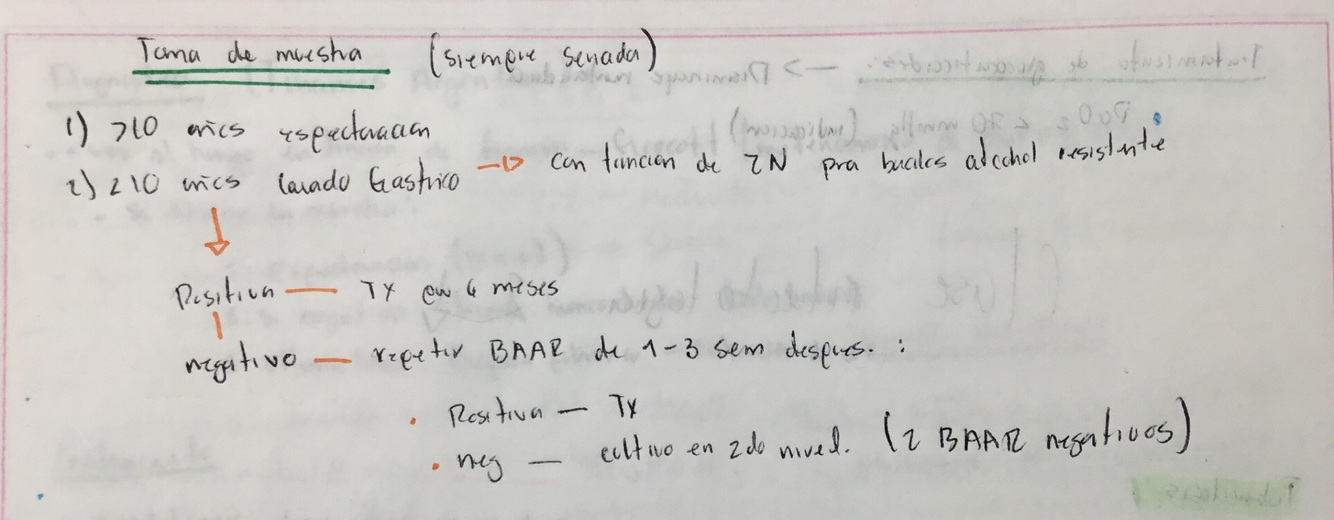 Toma de muestra (siempre seriada)
1) >10 años expectoración
2) <10 años lavado Gástrico → con tincion de ZN pra bacilos alcohol resistente
Positiva — TX en 6 meses
negativo — repetir BAAR de 1-3 sem despues. :
• Positiva — Tx
• neg — cultivo en 2do nivel. (2 BAAR negativos)